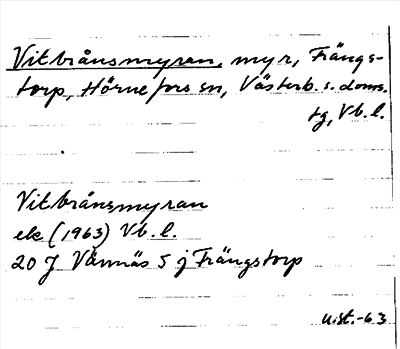 Vitbrånsmyran, myr, Frängs-
torp, Hörnefors sn, Västerb. s. doms.
tg, Vb. l.
Vitbrånsmyran
ek (1963) Vb. l.
20 J Vännäs 5 j Frängstorp
Uist.-63